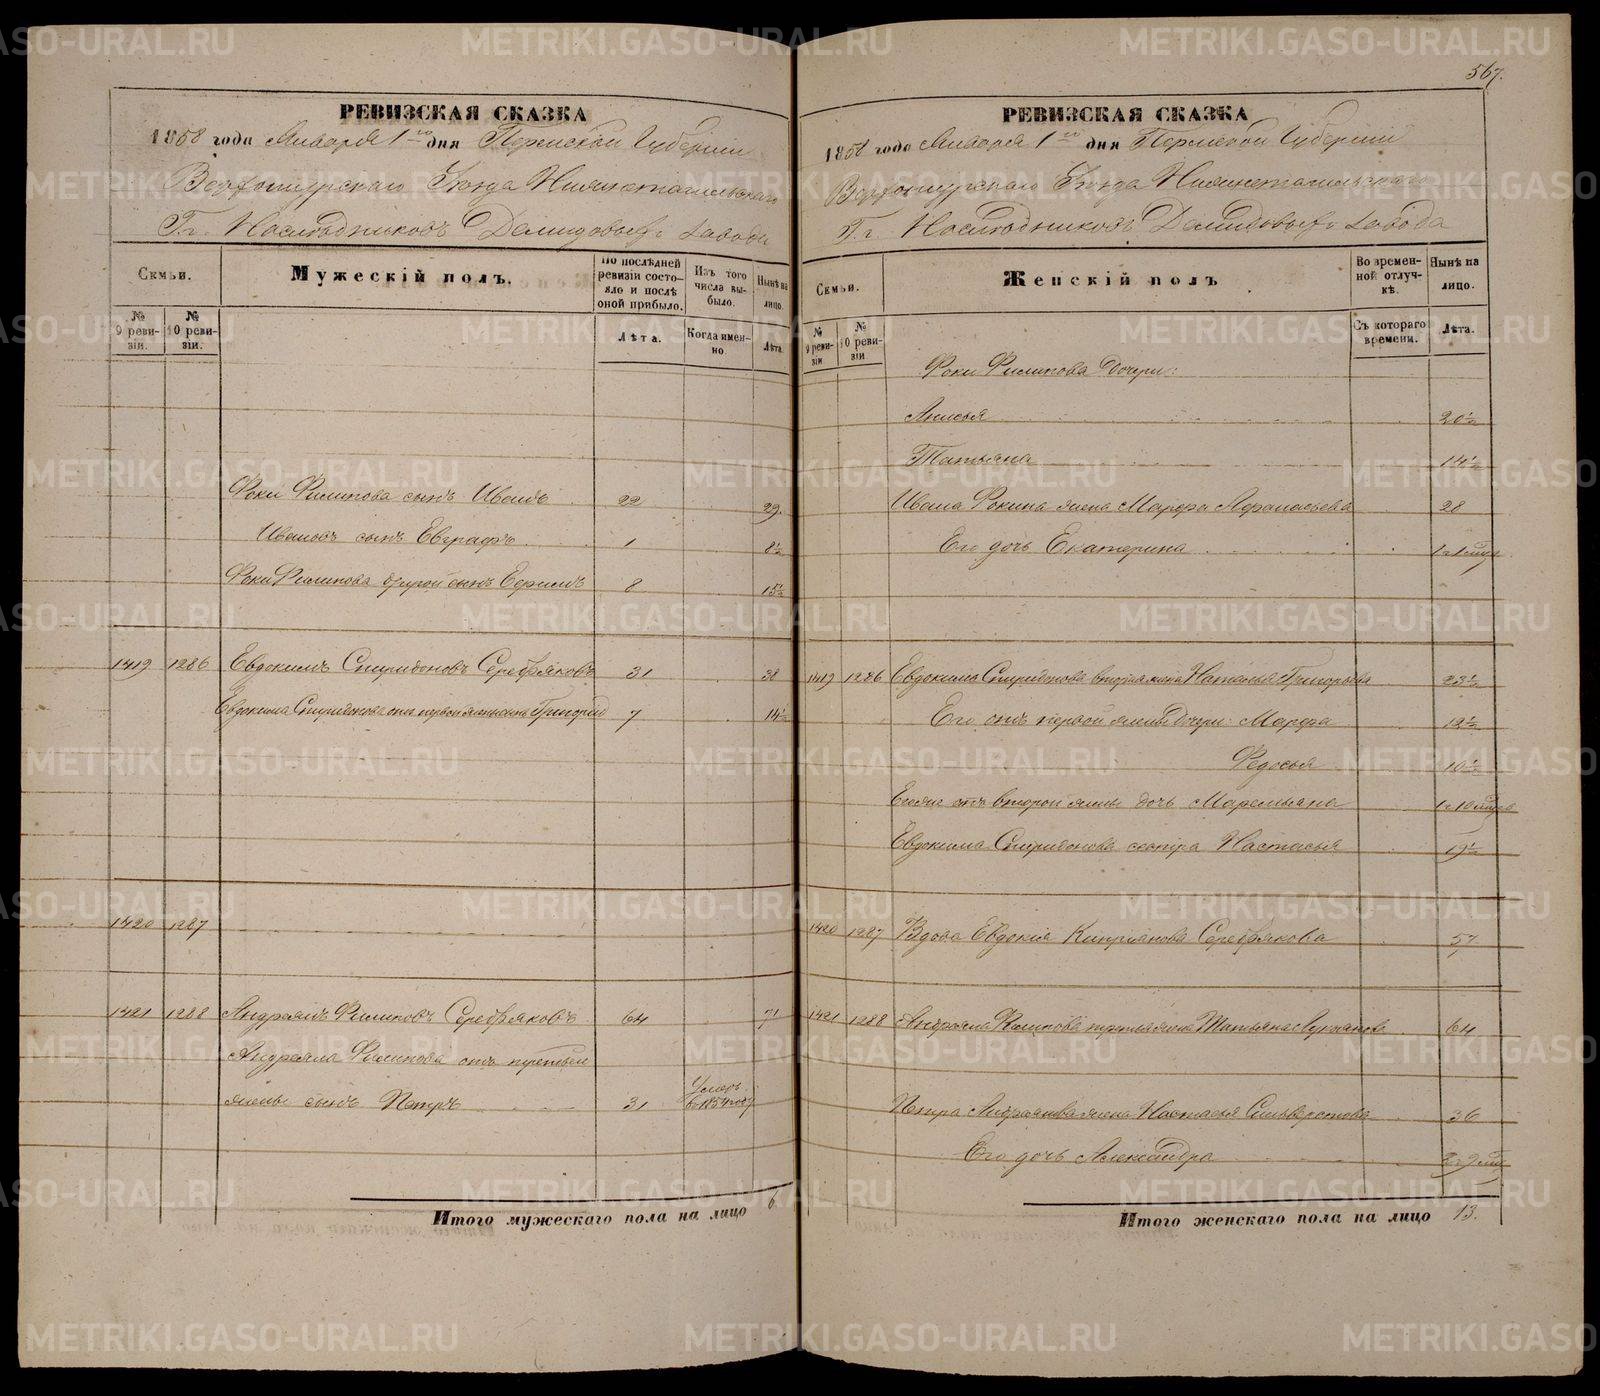 567.
РЕВИЗСКАЯ СКАЗКА
1858 года Января 1го дня Пермской Губернiи
Верхотурскаго Уѣзда Нижнетагильскаго
Г.г. Наслѣдниковъ Демидовыхъ завода
Семьи.
Мужескiй полъ.
По послѣдней ревизiи состояло и послѣ оной прибыло.
Изъ того числа выбыло.
Нынѣ на лицо.
№ 9 ревизiи.
№ 10 ревизiи.
Лѣта.
Когда именно.
Лѣта.
Фоки Филипова сынъ Иванъ 22 29.
Ивановъ сынъ Евграфъ 1 8½
Фоки Филипова другой сынъ Ефимъ 8 15½
1419 1286 Евдокимъ Спиридоновъ Серебряковъ 31 38
Евдокима Спиридонова отъ первой жены сынъ Григорiй 7 14½
1420 1287
1421 1288 Андреянъ Филиповъ Серебряковъ 64 71
Андреяна Филипова отъ третьей
жены сынъ Петръ 31 Умеръ въ 1854 году
Итого мужескаго пола на лицо 6
РЕВИЗСКАЯ СКАЗКА
1858 года Января 1го дня Пермской Губернiи
Верхотурскаго Уѣзда Нижнетагильскаго
Г.г. Наслѣдниковъ Демидовыхъ завода
Семьи.
Женскiй полъ
Во временной отлучкѣ.
Нынѣ на лицо.
№ 9 ревизiи
№ 10 ревизiи
Съ котораго времени.
Лѣта.
Фоки Филипова дочери:
Анисья 20½
Татьяна 14½
Ивана Фокина жена Марфа Афанасьева 28
Его дочь Екатерина
1419 1286 Евдокима Спиридонова вторая жена Настасья Григорьева 23½
Его отъ первой жены дочери: Марфа 12½
Федосья 10½
Его же отъ второй жены дочь Маремьяна
Евдокима Спиридонова сестра Настасья 19½
1420 1287 Вдова Евдокiя Киприянова Серебрякова 57
1421 1288 Андреяна Филипова третья жена Татьяна 64
Петра Андреянова жена Настасья Сильверстова 36
Его дочь Александра
Итого женскаго пола на лицо 13.
METRIKI.GASO-URAL.RU